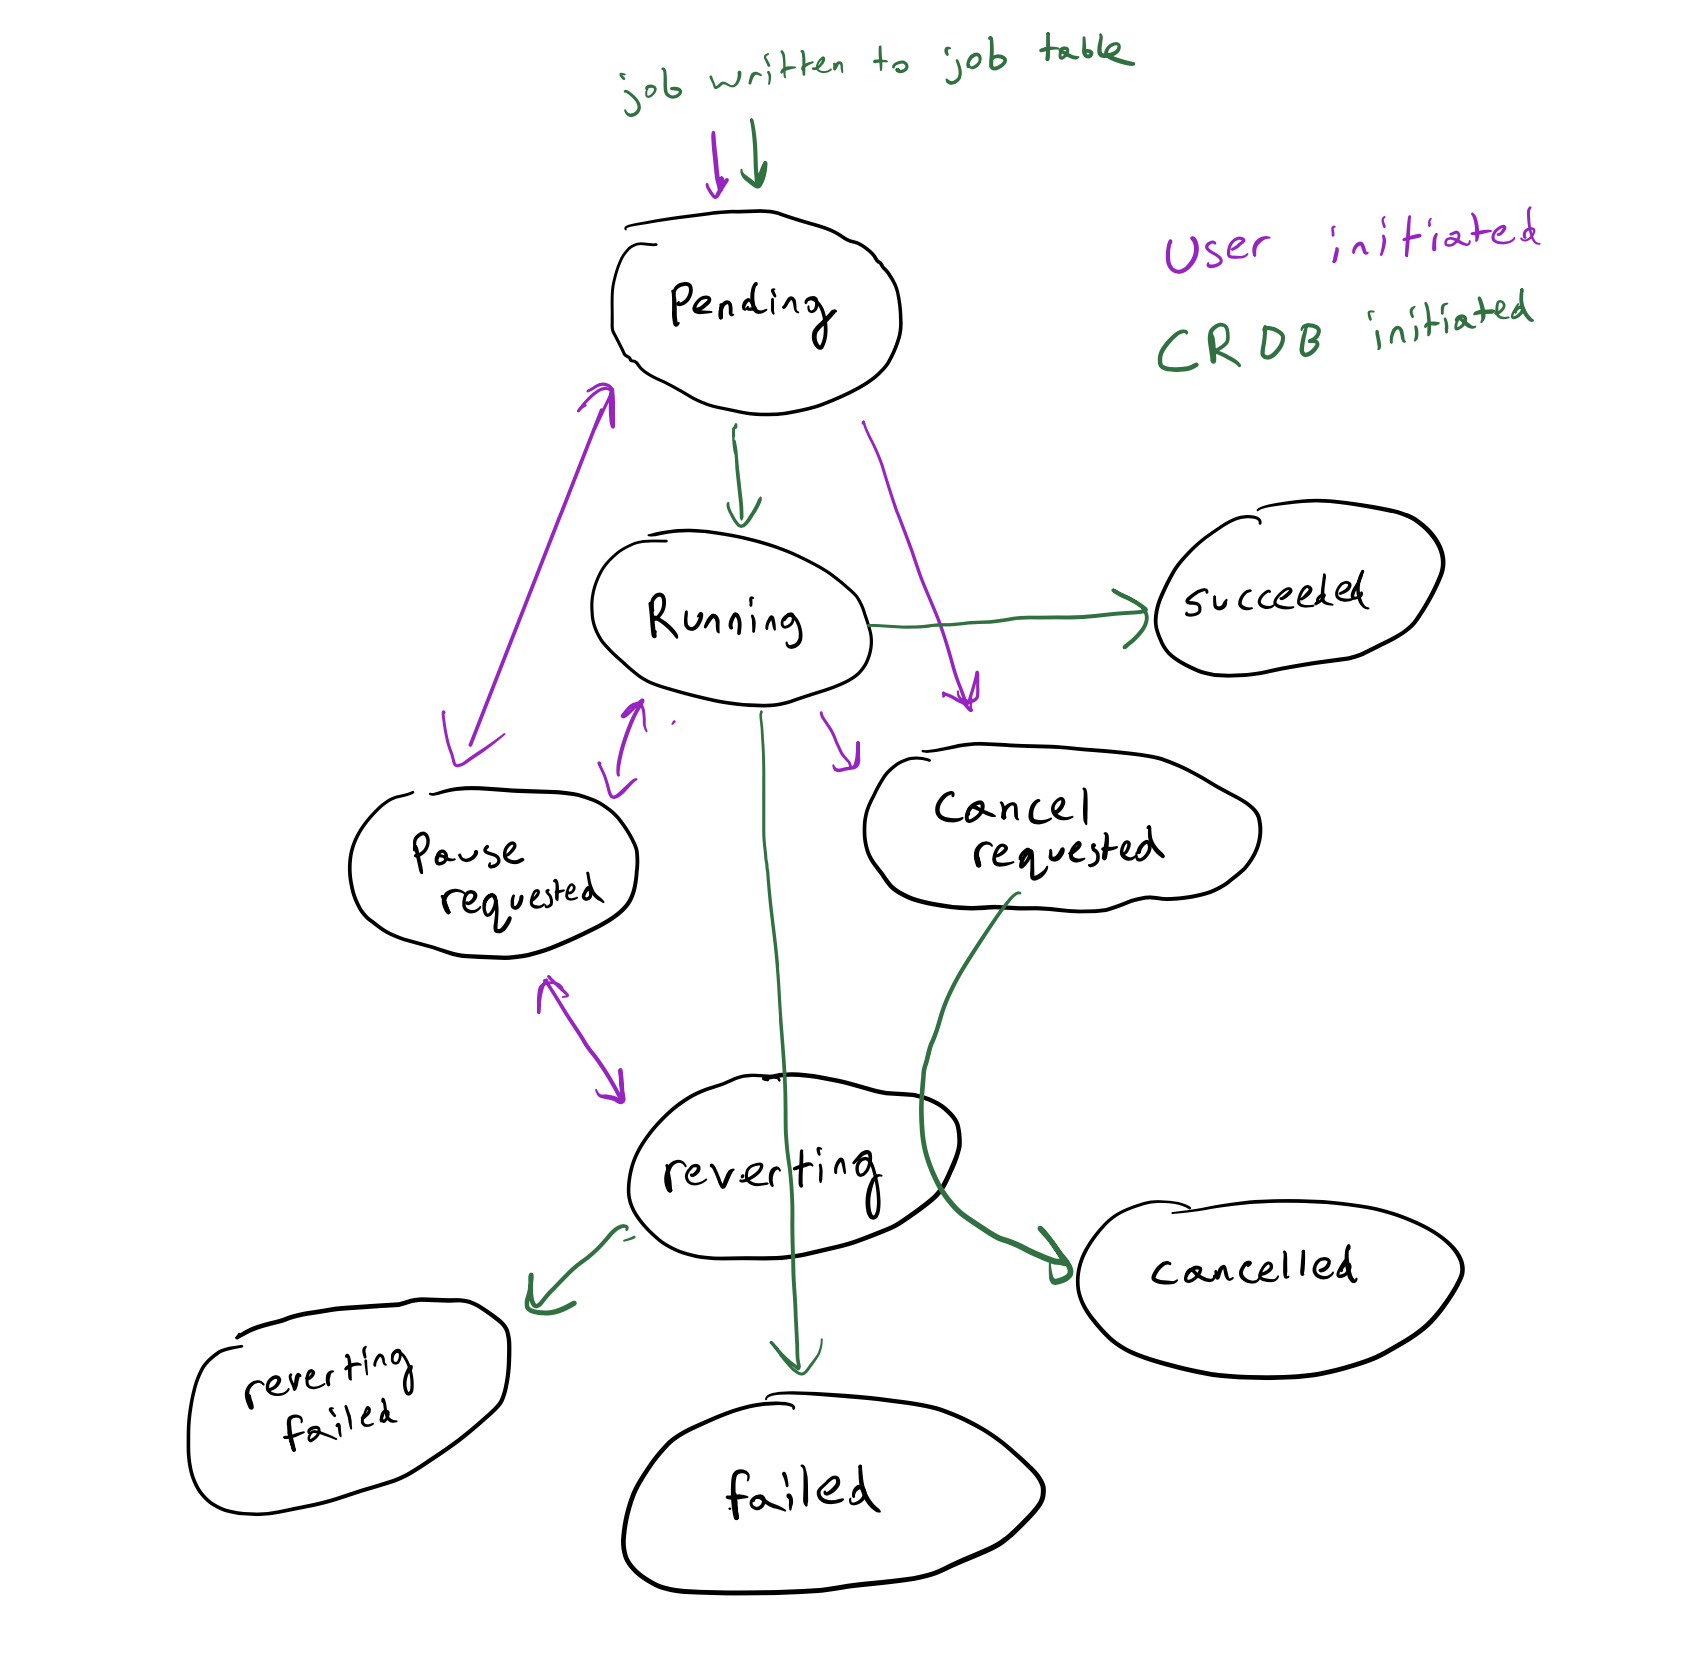 job written to job table
User initiated
CRDB initiated
Pending
Running
succeeded
Pause
requested
Cancel
requested
reverting
cancelled
reverting
failed
failed